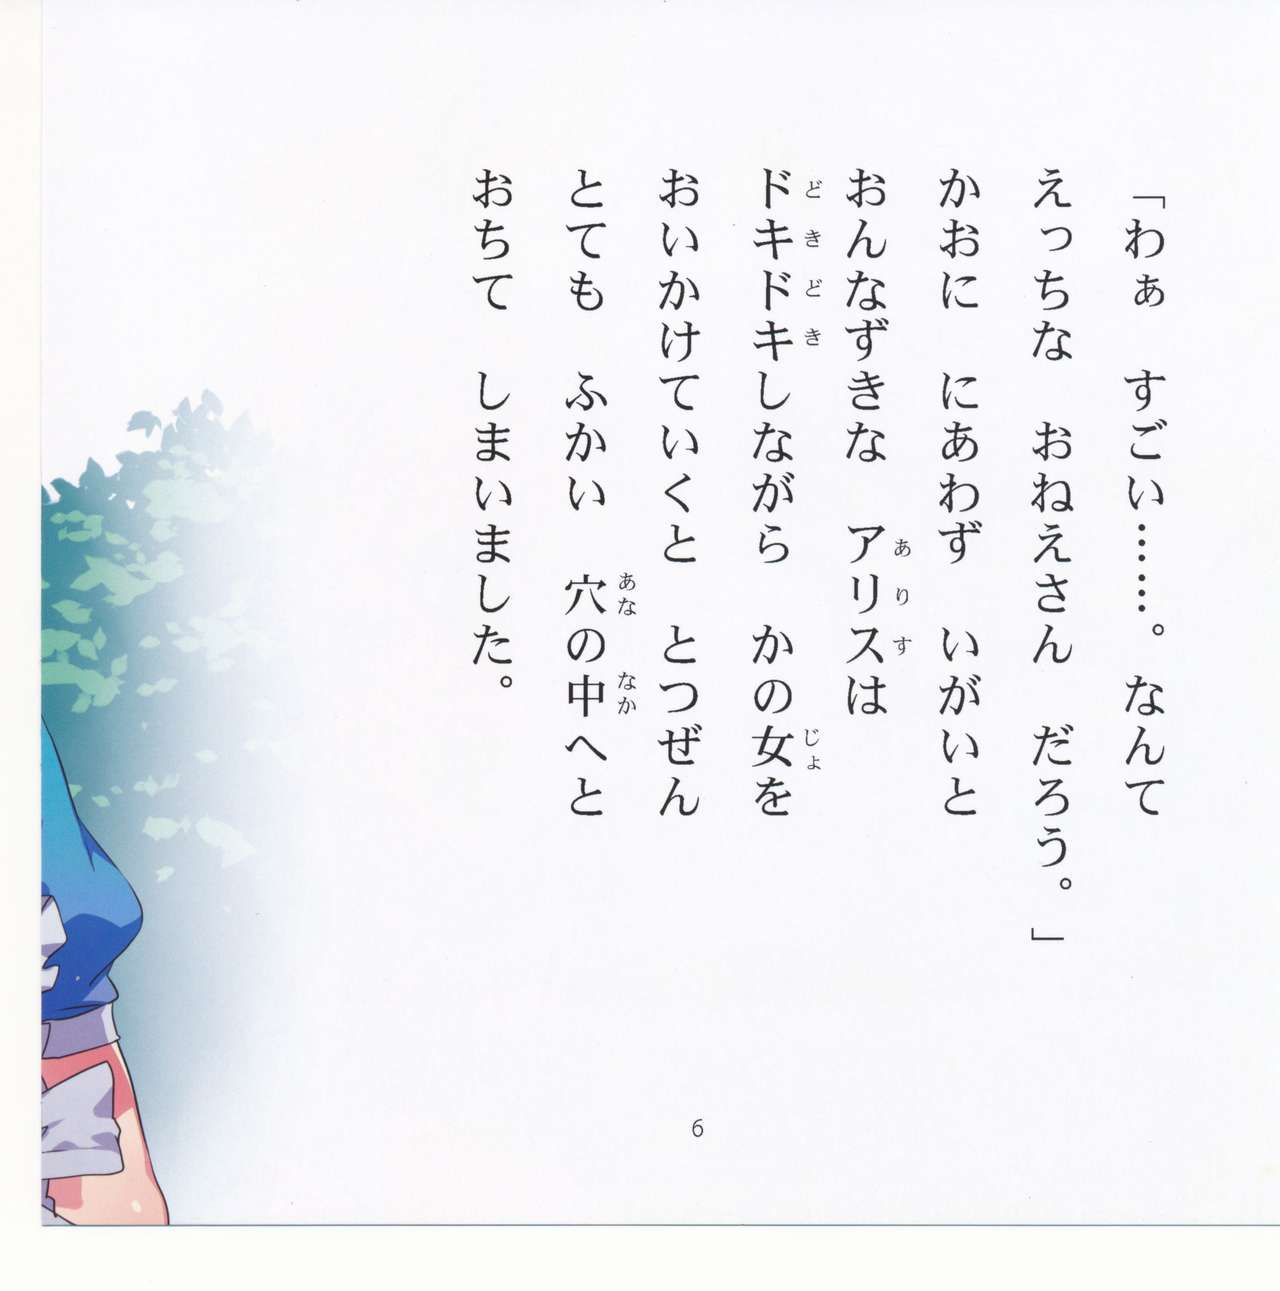 「わぁ　すごい……。なんて
えっちな　おねえさん　だろう。」
かおに　にあわず　いがいと
おんなずきな　アリスは
ありす
ドキドキしながら　かの女を
どきどき
じょ
おいかけていくと　とつぜん
とても　ふかい　穴の中へと
あな
なか
おちて　しまいました。
6